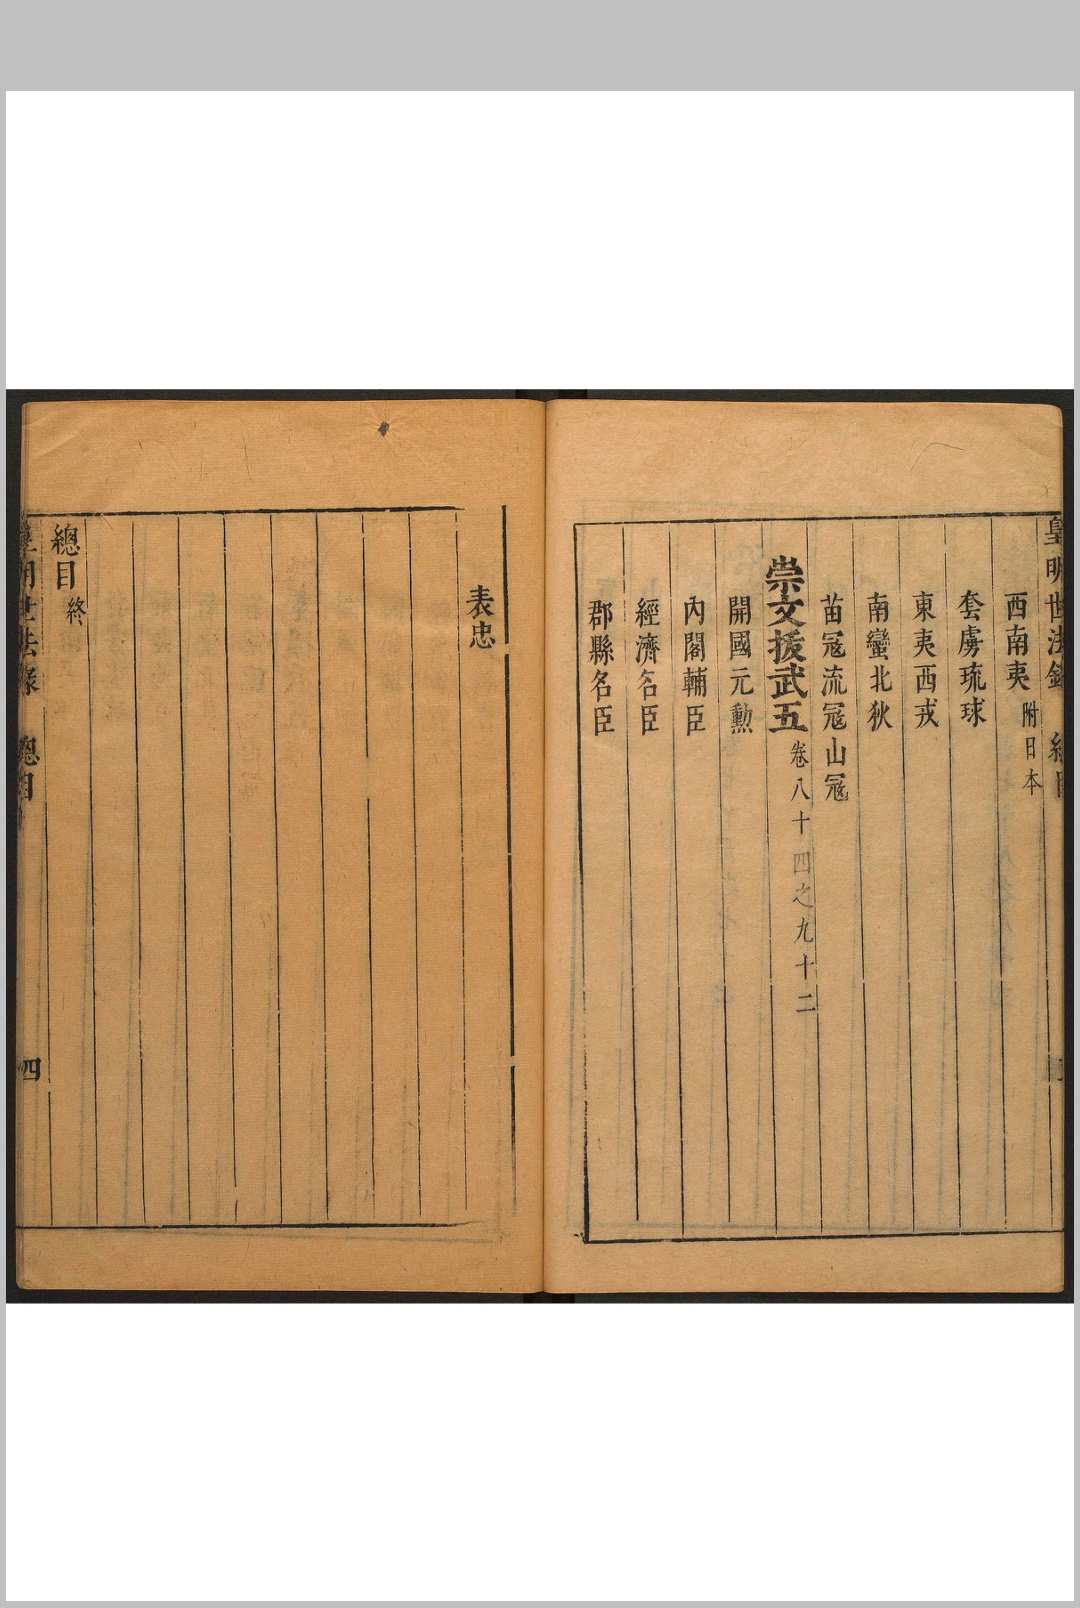 皇明世法錄 總目
西南夷 附日本
套虜琉球
東夷西戎
南蠻北狄
苗冦流冦山冦
崇文揆武五 卷八十四之九十二
開國元勳
內閣輔臣
經濟名臣
郡縣名臣
表忠
總目 終
皇明世法錄 總目 四